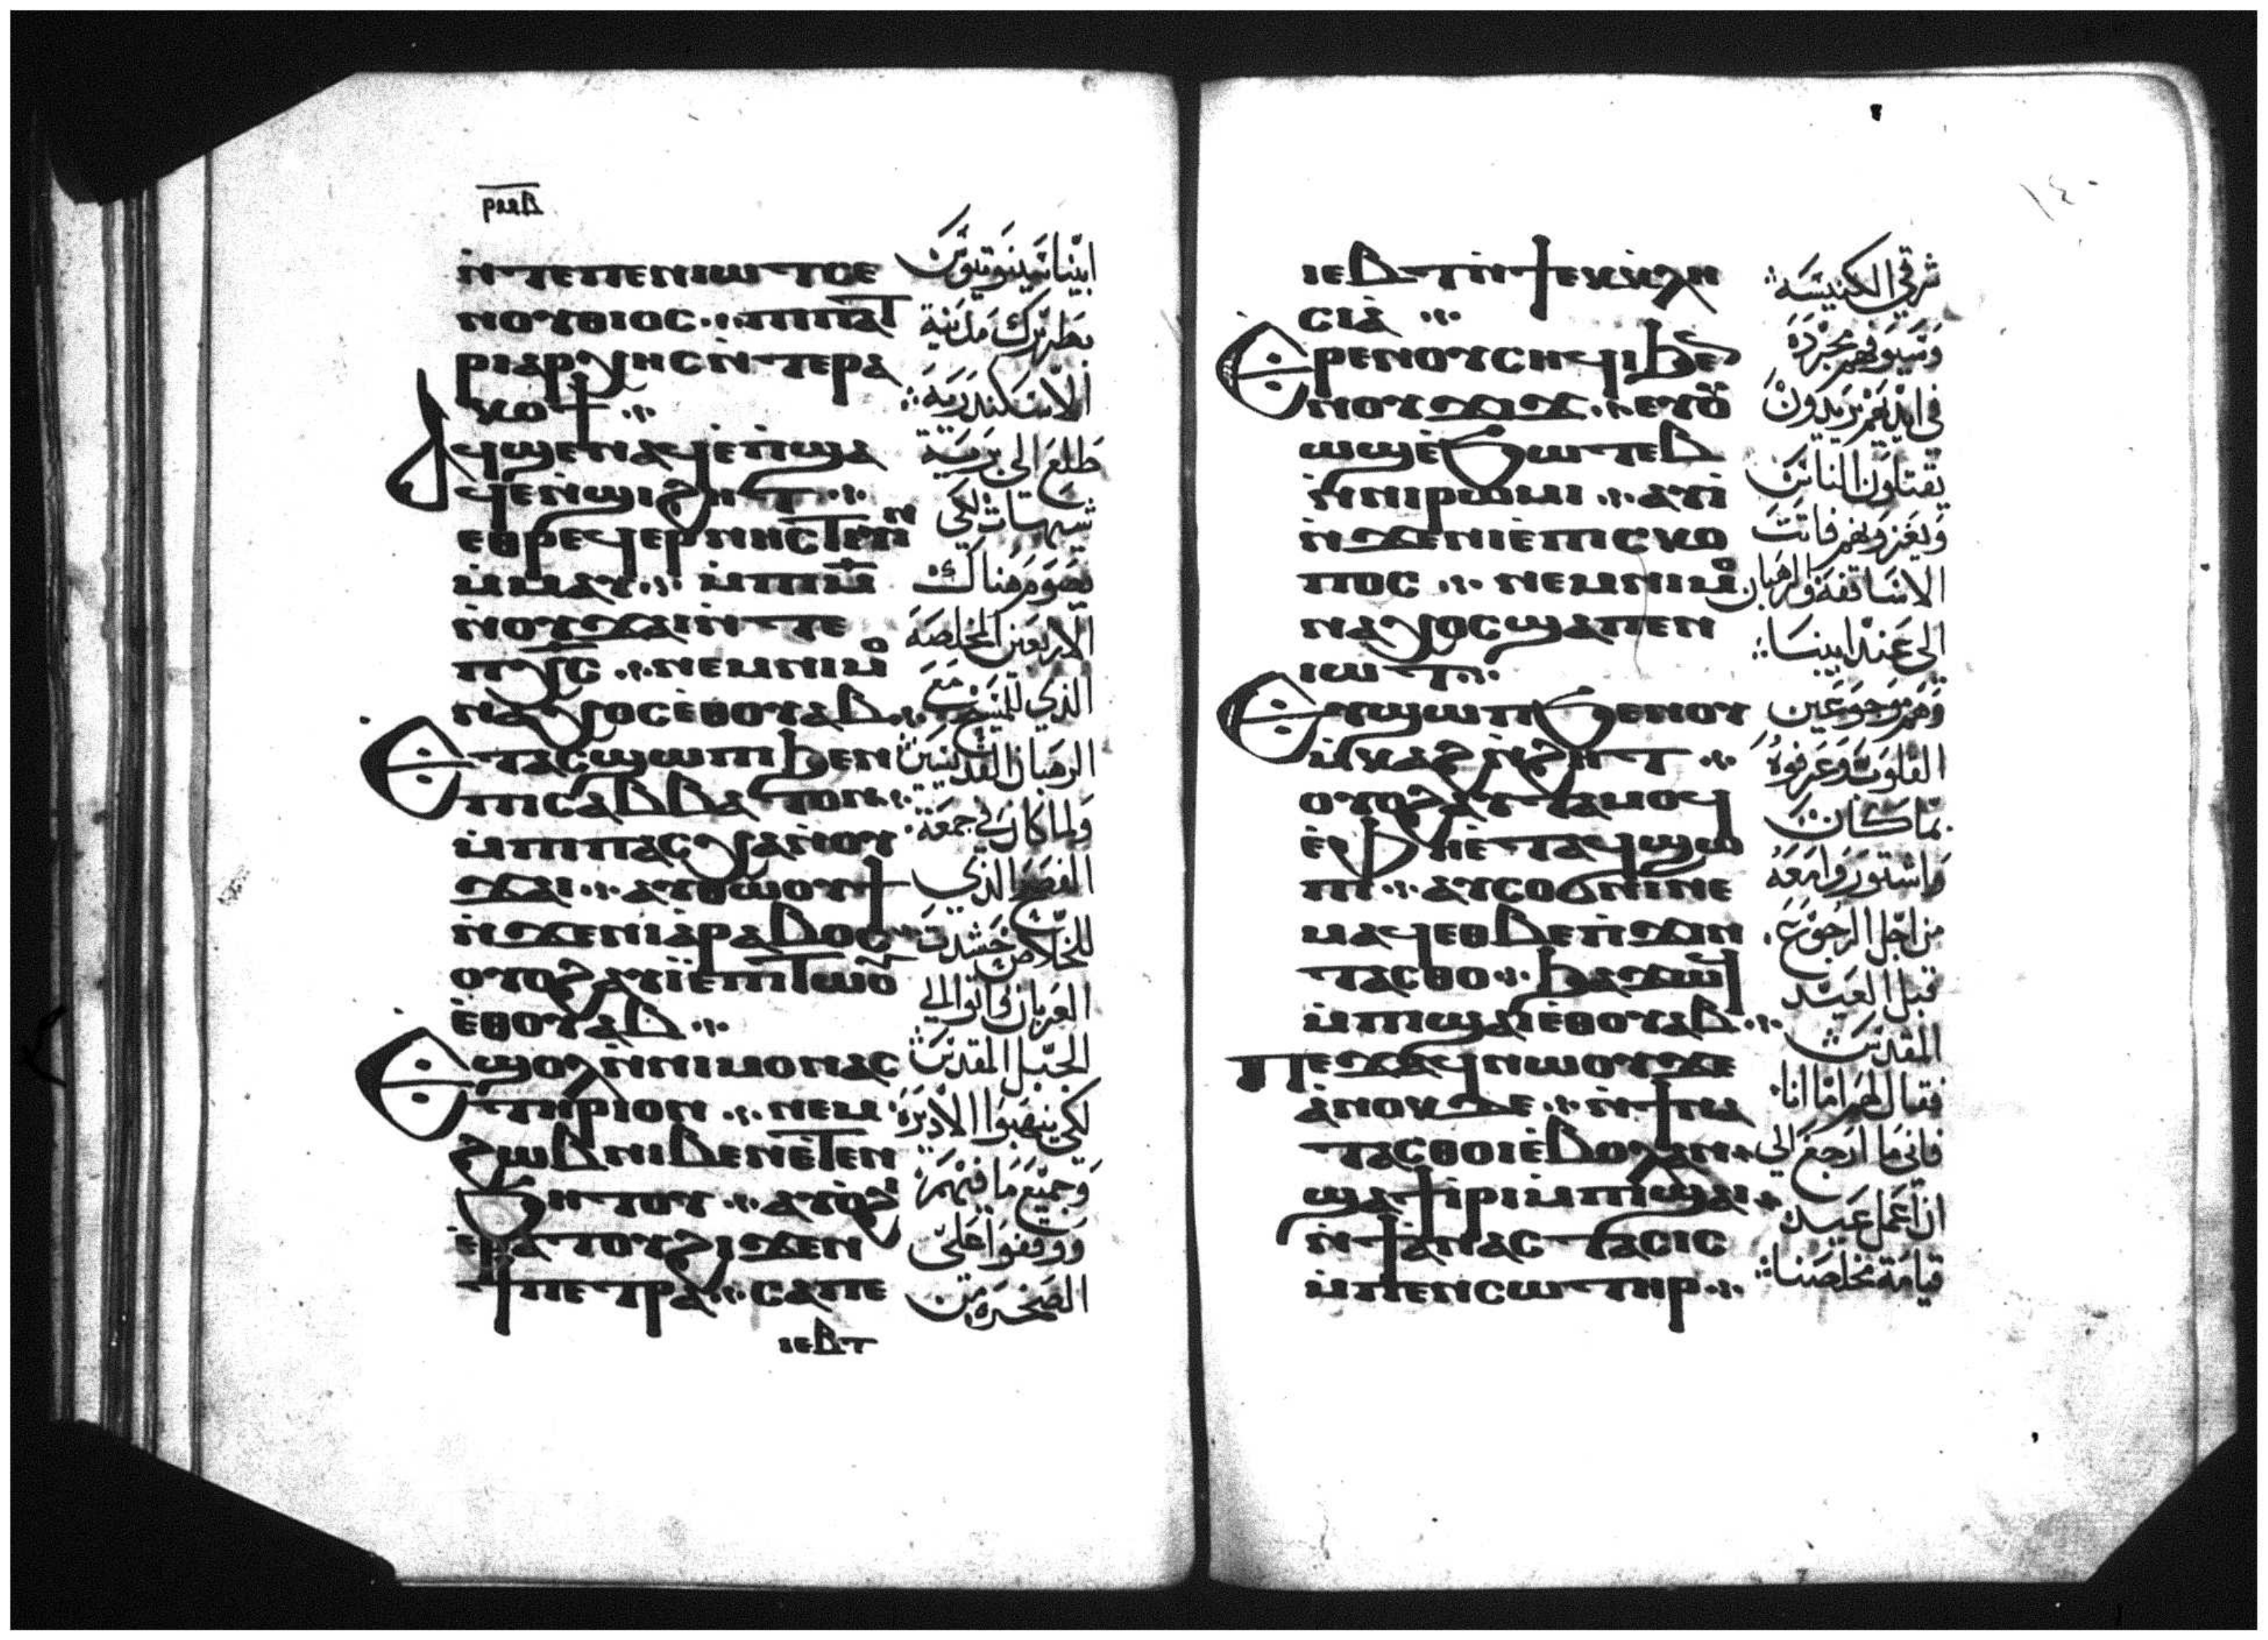 ⲣⲙⲃ
ⲛ̀ⲧⲉⲡⲉⲛⲓⲱⲧⲥⲉ
ⲛⲟⲩⲑⲓⲟⲥ·:·ⲡⲓⲡⲁ̅ⲧ̅
ⲣⲓⲁⲣⲭⲏⲥⲛ̀ⲧⲉⲣⲁ
ⲕⲟϯ·:·
ⲁϥϣⲉⲛⲁϥⲉ̀ⲡ̀ϣⲁ
ϥⲉⲛ̀ϣⲓϩⲏⲧ·:·
ⲉⲑⲣⲉϥⲉⲣⲛⲏⲥⲧⲉⲩⲓⲛ
ⲙ̀ⲙⲁⲩ·:·ⲙ̀ⲡⲓⲙ̅
ⲛ̀ⲟⲩϫⲁⲓⲛ̀ⲧⲉ
ⲡⲭ̅ⲥ̅·:·ⲛⲉⲙⲛⲓⲙⲟ
ⲛⲁⲭⲟⲥⲉ̀ⲑⲟⲩⲁⲃ·:·
ⲉⲧⲁⲥϣⲱⲡⲓϧⲉⲛ
ⲡⲓⲥⲁⲃⲃⲁⲧⲟⲛ·:·
ⲙ̀ⲡⲓⲡⲁⲥⲭⲁⲛ̀ⲟⲩ
ϫⲁⲓ·:·ⲁⲩⲑⲱⲟⲩϯ
ⲛ̀ϫⲉⲛⲓⲁ̀ⲣⲁⲃⲟⲥ
ⲟⲩⲟϩⲁⲩⲓ̀ⲉ̀ⲡⲓⲧⲱⲟⲩ
ⲉ̀ⲑⲟⲩⲁⲃ·:·
ⲉϣⲟⲗⲛ̀ⲛⲓⲙⲟⲛⲁⲥ
ⲧⲏⲣⲓⲟⲛ·:·ⲛⲉⲙ
ϩⲱⲃⲛⲓⲃⲉⲛⲉ̀ⲧⲉⲛ
ϧⲏⲧⲟⲩ·:·ⲁⲩⲟ̀ϩⲓ
ⲉ̀ⲣⲁⲧⲟⲩϩⲓϫⲉⲛ
ϯⲡⲉⲧⲣⲁ·:·ⲥⲁⲡⲉ
ⲓⲉⲃⲧ
ابينا شينوتيوس
بطريرك مدينة
الاسكندرية
طلع الى برية
شيهات لكي
يصوم هناك
الاربعين المخلصة
الذي للمسيح مع
الرهبان القديسين
ولما كان في جمعة
الفصح الذي
للخلاص حشدت
العربان واتوا الى
الجبل المقدس
لكي ينهبوا الاديرة
وجميع ما فيهم
ووقفوا على
الصخرة من
١٤٠
ⲓⲉⲃⲧⲛ̀ϯⲉⲕⲕⲗⲏ
ⲥⲓⲁ̀·:·
ⲉⲣⲉⲛⲟⲩⲥⲏϥⲓϧⲉⲛ
ⲛⲟⲩϫⲓϫ·:·ⲉⲩⲟⲩ
ⲱϣⲉ̀ϧⲱⲧⲉⲃ
ⲛ̀ⲛⲓⲣⲱⲙⲓ·:·ⲁⲩⲓ̀
ⲛ̀ϫⲉⲛⲓⲉ̀ⲡⲓⲥⲕⲟ
ⲡⲟⲥ·:·ⲛⲉⲙⲛⲓⲙⲟ
ⲛⲁⲭⲟⲥϣⲁⲡⲉⲛ
ⲓⲱⲧ·:·
ⲉⲩϣⲱⲡϧⲉⲛⲟⲩ
ⲙ̀ⲕⲁϩⲛ̀ϩⲏⲧ·:·
ⲟⲩⲟϩⲁⲩⲧⲁⲙⲟϥ
ⲉ̀ⲫⲏⲉⲧⲁϥϣⲱ
ⲡⲓ·:·ⲁⲩⲥⲟϭⲛⲓⲛⲉ
ⲙⲁϥⲉⲑⲃⲉⲡ̀ϫⲓⲛ
ⲧⲁⲥⲑⲟ·:·ϧⲁϫⲱϥ
ⲙ̀ⲡⲓϣⲁⲓⲉ̀ⲑⲟⲩⲁⲃ·:·
ⲡⲉϫⲁϥⲛⲱⲟⲩϫⲉ
ⲁ̀ⲛⲟⲕⲇⲉ·:·ⲛ̀ϯⲛⲁ
ⲧⲁⲥⲑⲟⲓⲉ̀ⲃⲟⲗⲁⲛ
ϣⲁϯⲓⲣⲓⲙ̀ⲡⲓϣⲁⲓ
ⲛ̀ϯⲁ̀ⲛⲁⲥⲧⲁⲥⲓⲥ
ⲙ̀ⲡⲉⲛⲥⲱⲧⲏⲣ·:·
شرقي الكنيسة
وسيوفهم مجردة
في ايديهم يريدون
يقتلون الناس
فاتت
الاساقفة والرهبان
الى عند ابينا
وهم موجوعين
القلوب وعرفوه
بما كان
واشتوروا معه
من اجل الرجوع
قبل العيد
المقدس
فقال لهم اما انا
فاني ما ارجع الى
ان اعمل عيد
قيامة مخلصنا